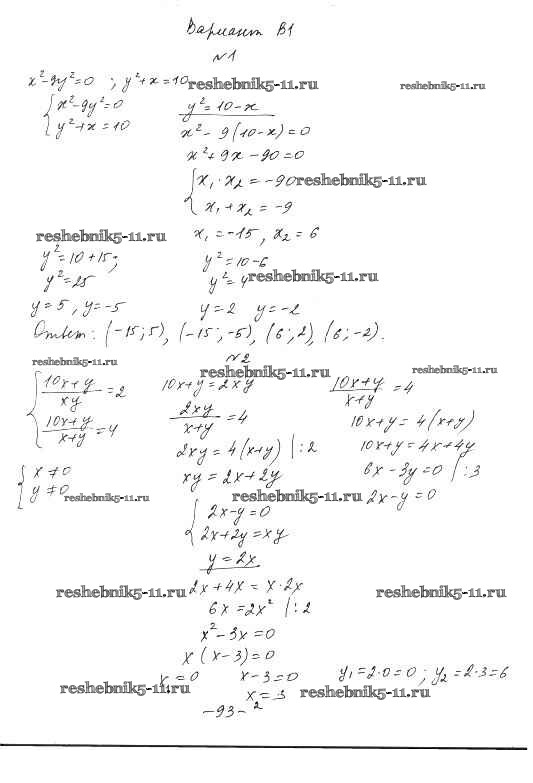 Вариант В1
№1
x²-9y²=0 ; y²+x=10 reshebnik5-11.ru reshebnik5-11.ru
{ x²-9y²=0 y²=10-x
{ y²+x=10 x²-9(10-x)=0
x²+9x-90=0
{ x₁·x₂=-90 reshebnik5-11.ru
{ x₁+x₂=-9
reshebnik5-11.ru x₁=-15, x₂=6
y²=10+15; y²=10-6
y²=25 y²=4 reshebnik5-11.ru
y=5, y=-5 y=2 y=-2
Ответ: (-15;5), (-15;-5), (6;2), (6;-2).
№2
reshebnik5-11.ru reshebnik5-11.ru reshebnik5-11.ru
{ (10x+y)/(xy)=2 10x+y=2xy (10x+y)/(x+y)=4
{ (10x+y)/(x+y)=4 (2xy)/(x+y)=4 10x+y=4(x+y)
2xy=4(x+y) |:2 10x+y=4x+4y
{ x≠0 xy=2x+2y 6x-3y=0 |:3
{ y≠0 reshebnik5-11.ru reshebnik5-11.ru 2x-y=0
{ 2x-y=0
{ 2x+2y=xy
y=2x
reshebnik5-11.ru 2x+4x=x·2x reshebnik5-11.ru
6x=2x² |:2
x²-3x=0
x(x-3)=0
x=0 x-3=0 y₁=2·0=0; y₂=2·3=6
reshebnik5-11.ru x=3 reshebnik5-11.ru
-93- 2